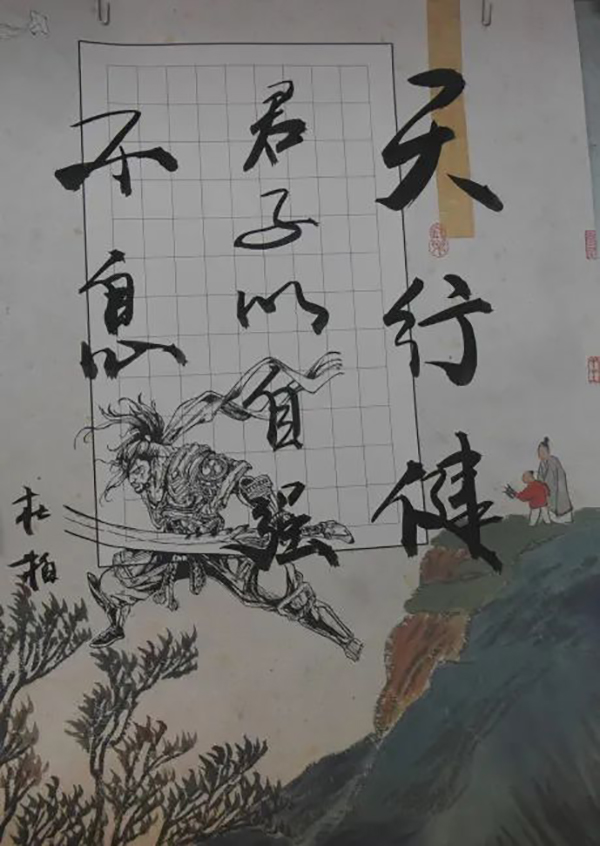 天行健
君子以自强
不息
杜柏